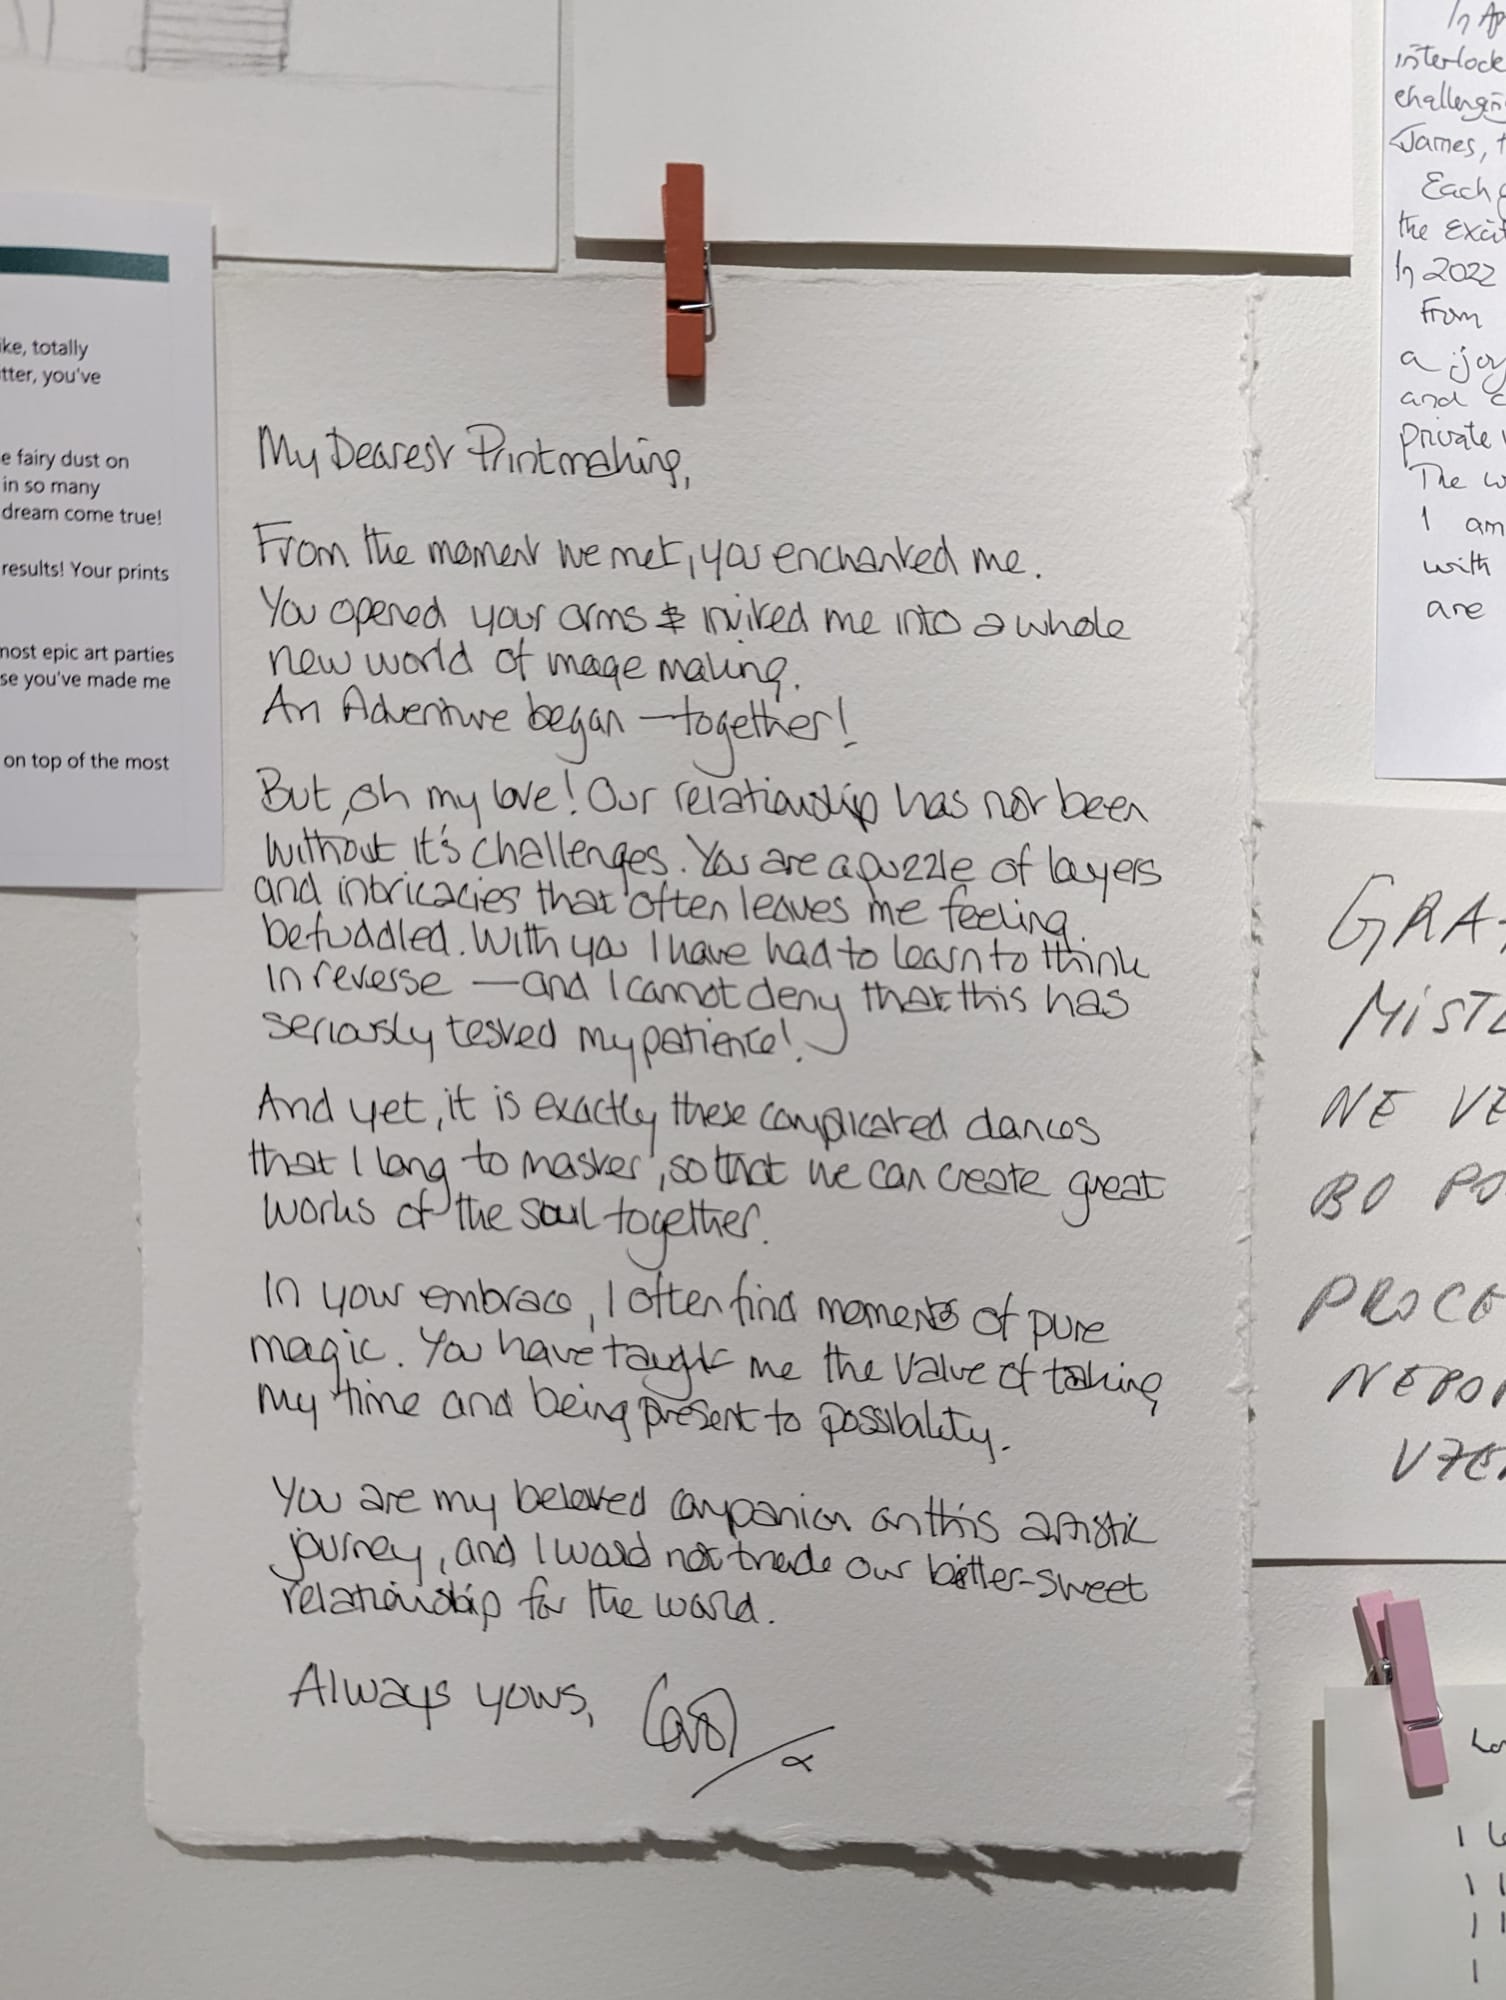 ike, totally
itter, you've
e fairy dust on
in so many
dream come true!
results! Your prints
most epic art parties
se you've made me
on top of the most
My Dearest Printmaking,
From the moment we met, you enchanted me.
You opened your arms & invited me into a whole
new world of image making.
An Adventure began — together!
But, oh my love! Our relationship has not been
without it's challenges. You are a puzzle of layers
and intricacies that often leaves me feeling
befuddled. With you I have had to learn to think
in reverse — and I cannot deny that this has
seriously tested my patience!
And yet, it is exactly these complicated dances
that I long to master, so that we can create great
works of the soul together.
In your embrace, I often find moments of pure
magic. You have taught me the value of taking
my time and being present to possibility.
You are my beloved companion on this artistic
journey, and I would not trade our bitter-sweet
relationship for the world.
Always yours,
In Ap
interlock
challengin
James, t
Each
the Exci
In 2022
From
a joy
and c
private
The w
I am
with
are
GRA
MiSTL
NE VE
BO PO
PROCE
NEPO